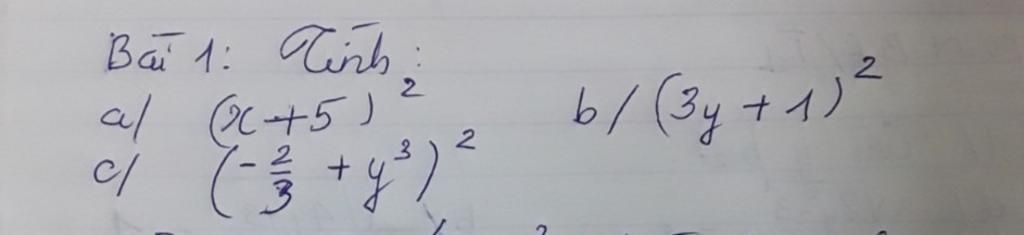 Bài 1: Tính:
a/ (x+5)² b/ (3y+1)²
c/ (-2/3 + y³)²